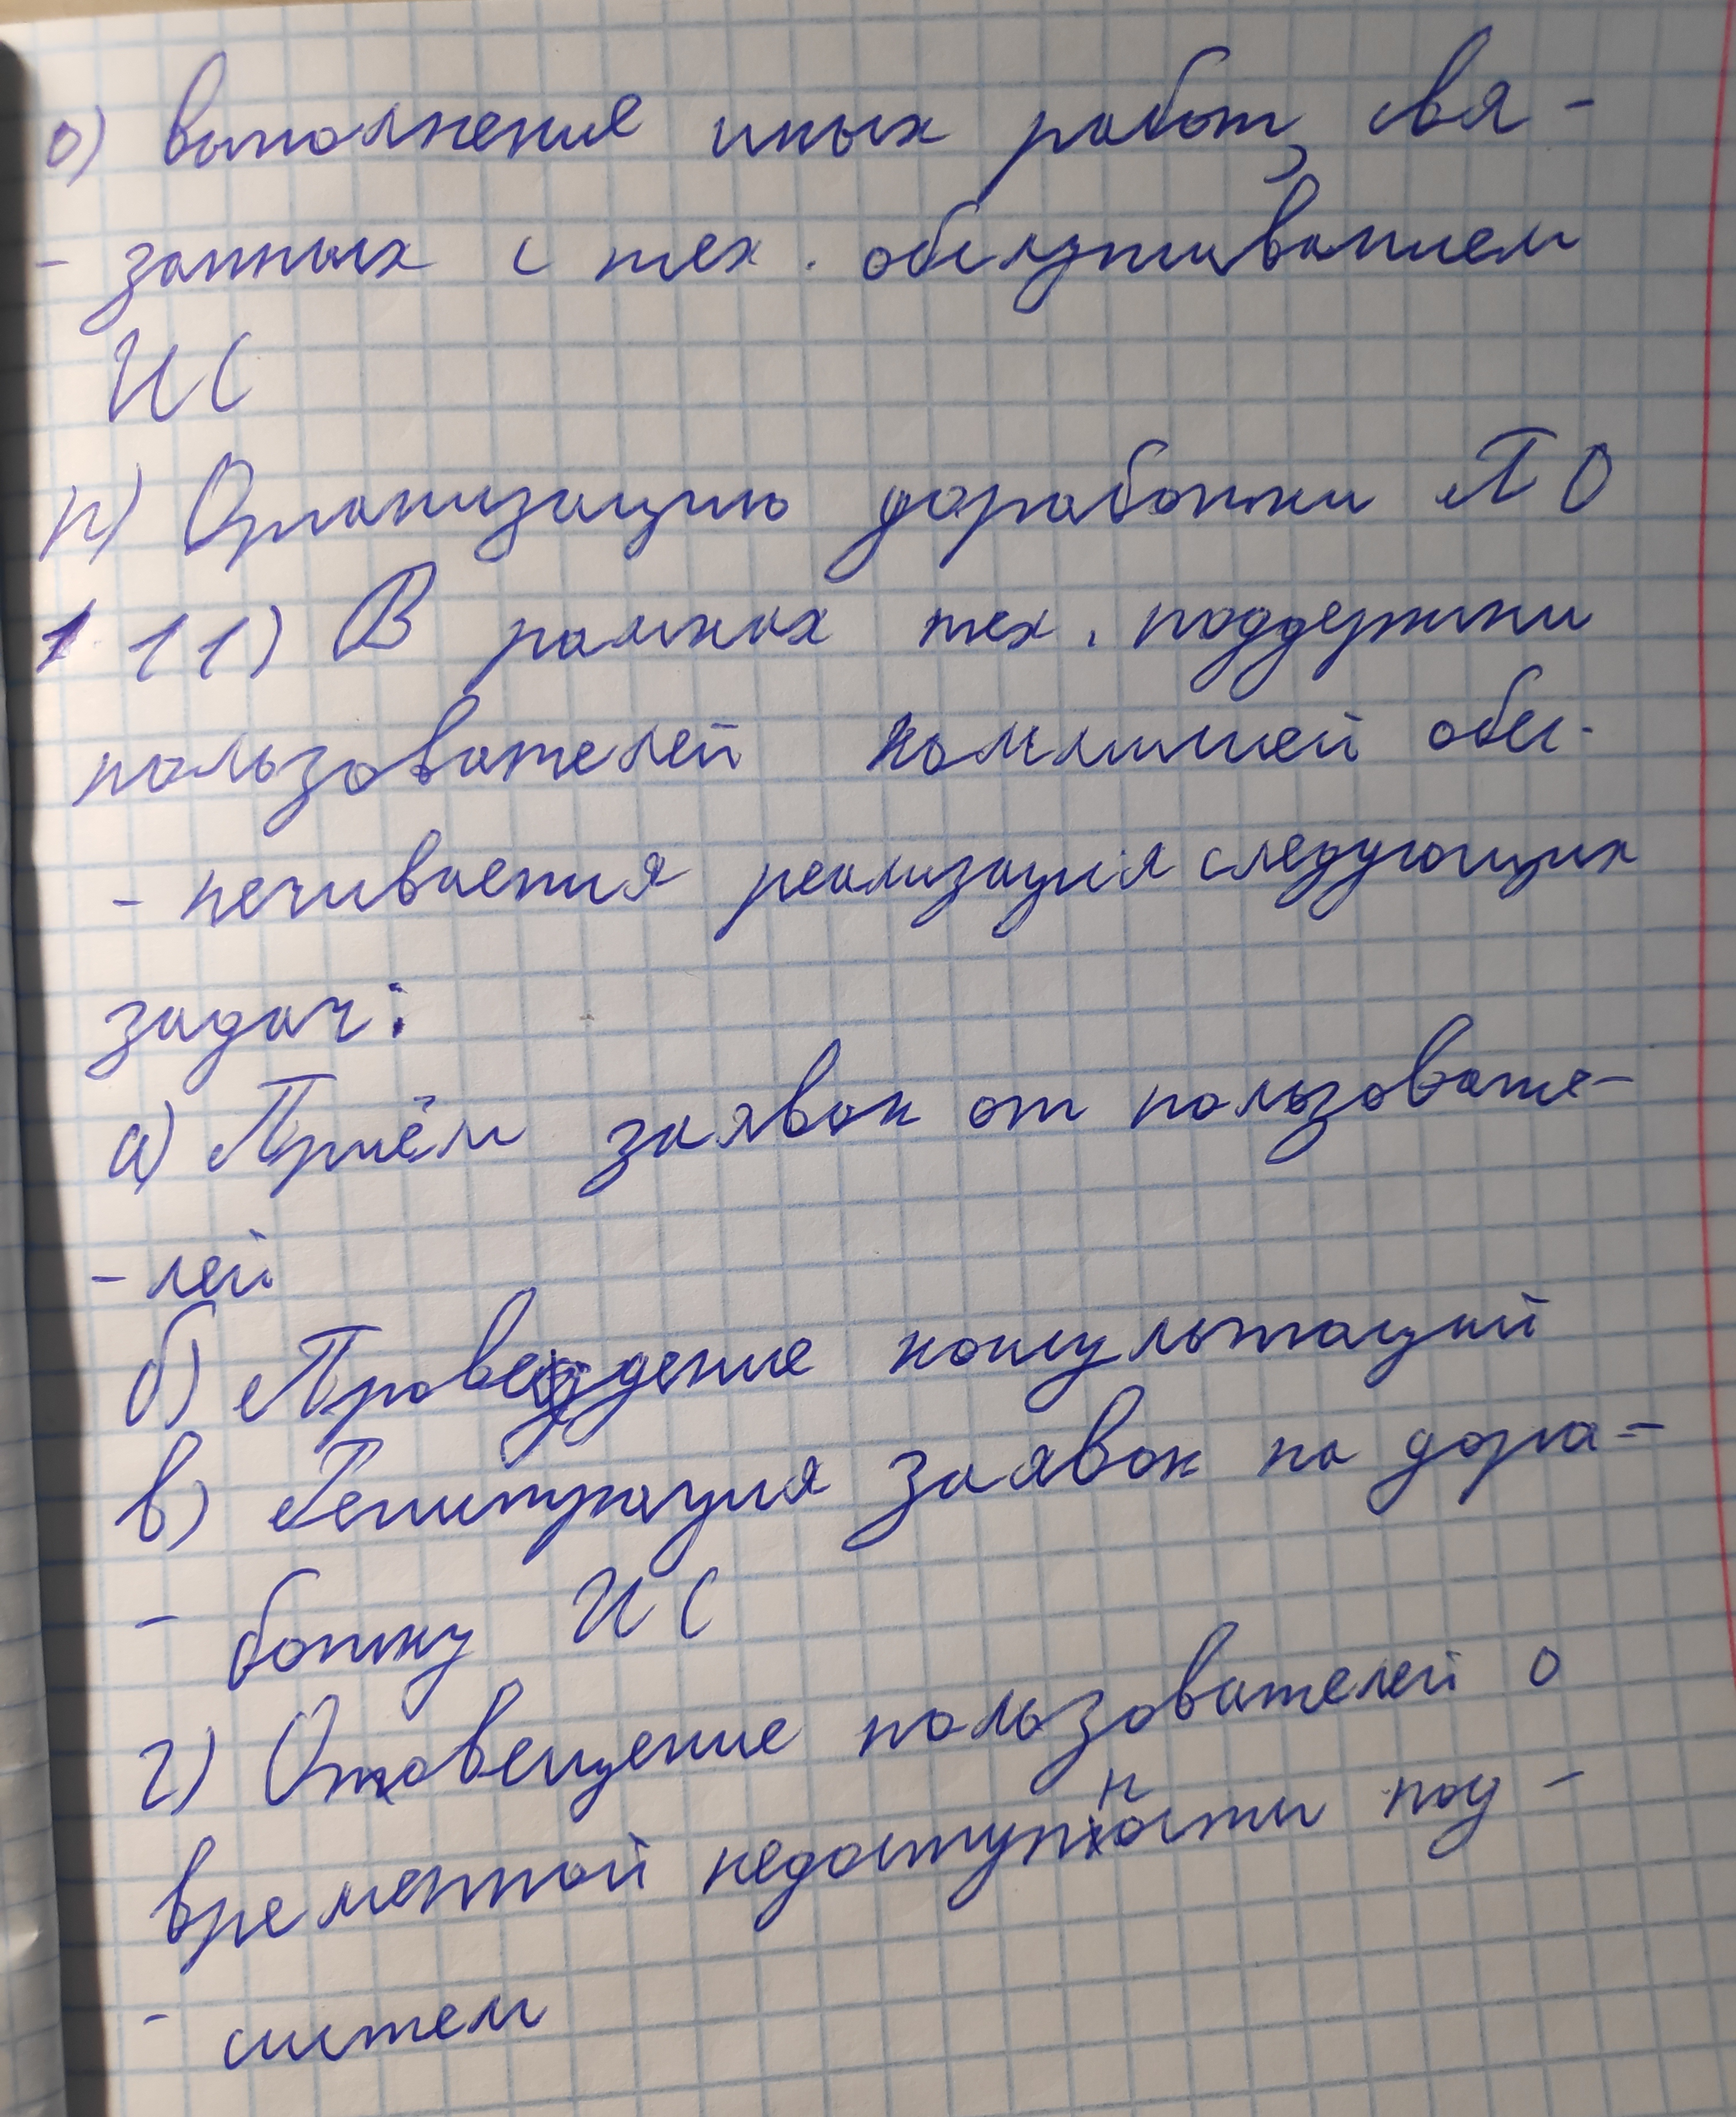 о) выполнение иных работ, свя-
- занных с тех. обслуживанием
ИС
п) Организацию доработки ПО
11) В рамках тех. поддержки
пользователей комиссией обес-
- печивается реализация следующих
задач:
а) Приём заявок от пользовате-
- лей
б) Проведение консультаций
в) Регистрация заявок на дора-
- ботку ИС
г) Оповещение пользователей о
временной недоступности под-
- систем